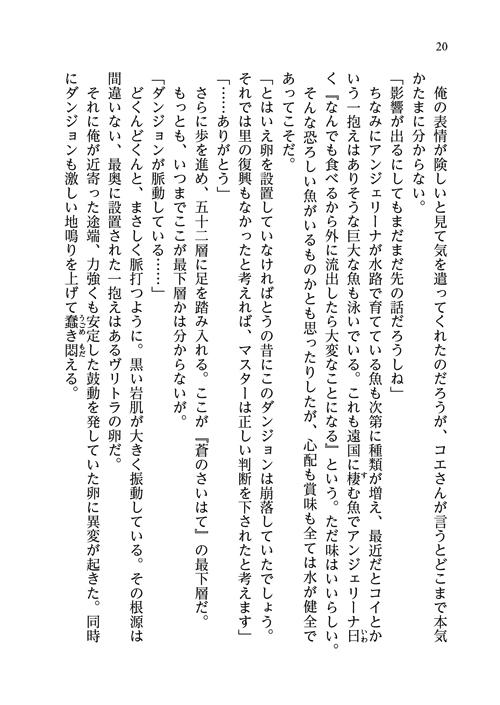 20
俺の表情が険しいと見て気を遣ってくれたのだろうが、コエさんが言うとどこまで本気
かたまに分からない。
「影響が出るにしてもまだまだ先の話だろうしね」
ちなみにアンジェリーナが水路で育てている魚も次第に種類が増え、最近だとコイとか
いう一抱えはありそうな巨大な魚も泳いでいる。これも遠国に棲む魚でアンジェリーナ曰
く『なんでも食べるから外に流出したら大変なことになる』という。ただ味はいいらしい。
そんな恐ろしい魚がいるものかとも思ったりしたが、心配も賞味も全ては水が健全で
あってこそだ。
「とはいえ卵を設置していなければとうの昔にこのダンジョンは崩落していたでしょう。
それでは里の復興もなかったと考えれば、マスターは正しい判断を下されたと考えます」
「……ありがとう」
さらに歩を進め、五十二層に足を踏み入れる。ここが『蒼のさいはて』の最下層だ。
もっとも、いつまでここが最下層かは分からないが。
「ダンジョンが脈動している……」
どくんどくんと、まさしく脈打つように。黒い岩肌が大きく振動している。その根源は
間違いない、最奥に設置された一抱えはあるヴリトラの卵だ。
それに俺が近寄った途端、力強くも安定した鼓動を発していた卵に異変が起きた。同時
にダンジョンも激しい地鳴りを上げて蠢き悶える。